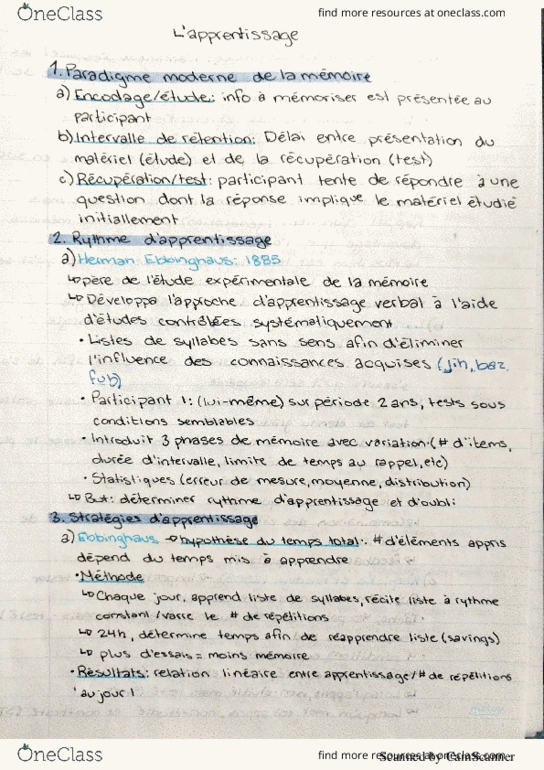 OneClass
find more resources at oneclass.com
L'apprentissage
1. Paradigme moderne de la mémoire
a) Encodage/étude: info à mémoriser est présentée au
participant
b) Intervalle de rétention: Délai entre présentation du
matériel (étude) et de la récupération (test)
c) Récupération/test: participant tente de répondre à une
question dont la réponse implique le matériel étudié
initiallement
2. Rythme d'apprentissage
a) Herman Ebbinghaus: 1885
↳ père de l'étude expérimentale de la mémoire
↳ Développa l'approche d'apprentissage verbal à l'aide
d'études contrôlées systématiquement
• Listes de syllabes sans sens afin d'éliminer
l'influence des connaissances acquises (jih, baz,
fub)
• Participant 1: (lui-même) sur période 2 ans, tests sous
conditions semblables
• Introduit 3 phases de mémoire avec variation (# d'items,
durée d'intervalle, limite de temps au rappel, etc)
• Statistiques (erreur de mesure, moyenne, distribution)
↳ But: déterminer rythme d'apprentissage et d'oubli
3. Stratégies d'apprentissage
a) Ebbinghaus → hypothèse du temps total: # d'éléments appris
dépend du temps mis à apprendre
• Méthode
↳ Chaque jour, apprend liste de syllabes, récite liste à rythme
constant/varie le # de répétitions
↳ 24h, détermine temps afin de réapprendre liste (savings)
↳ plus d'essais = moins mémoire
• Résultats: relation linéaire entre apprentissage/# de répétitions
au jour 1
OneClass
find more resources at oneclass.com
Scanned by CamScanner